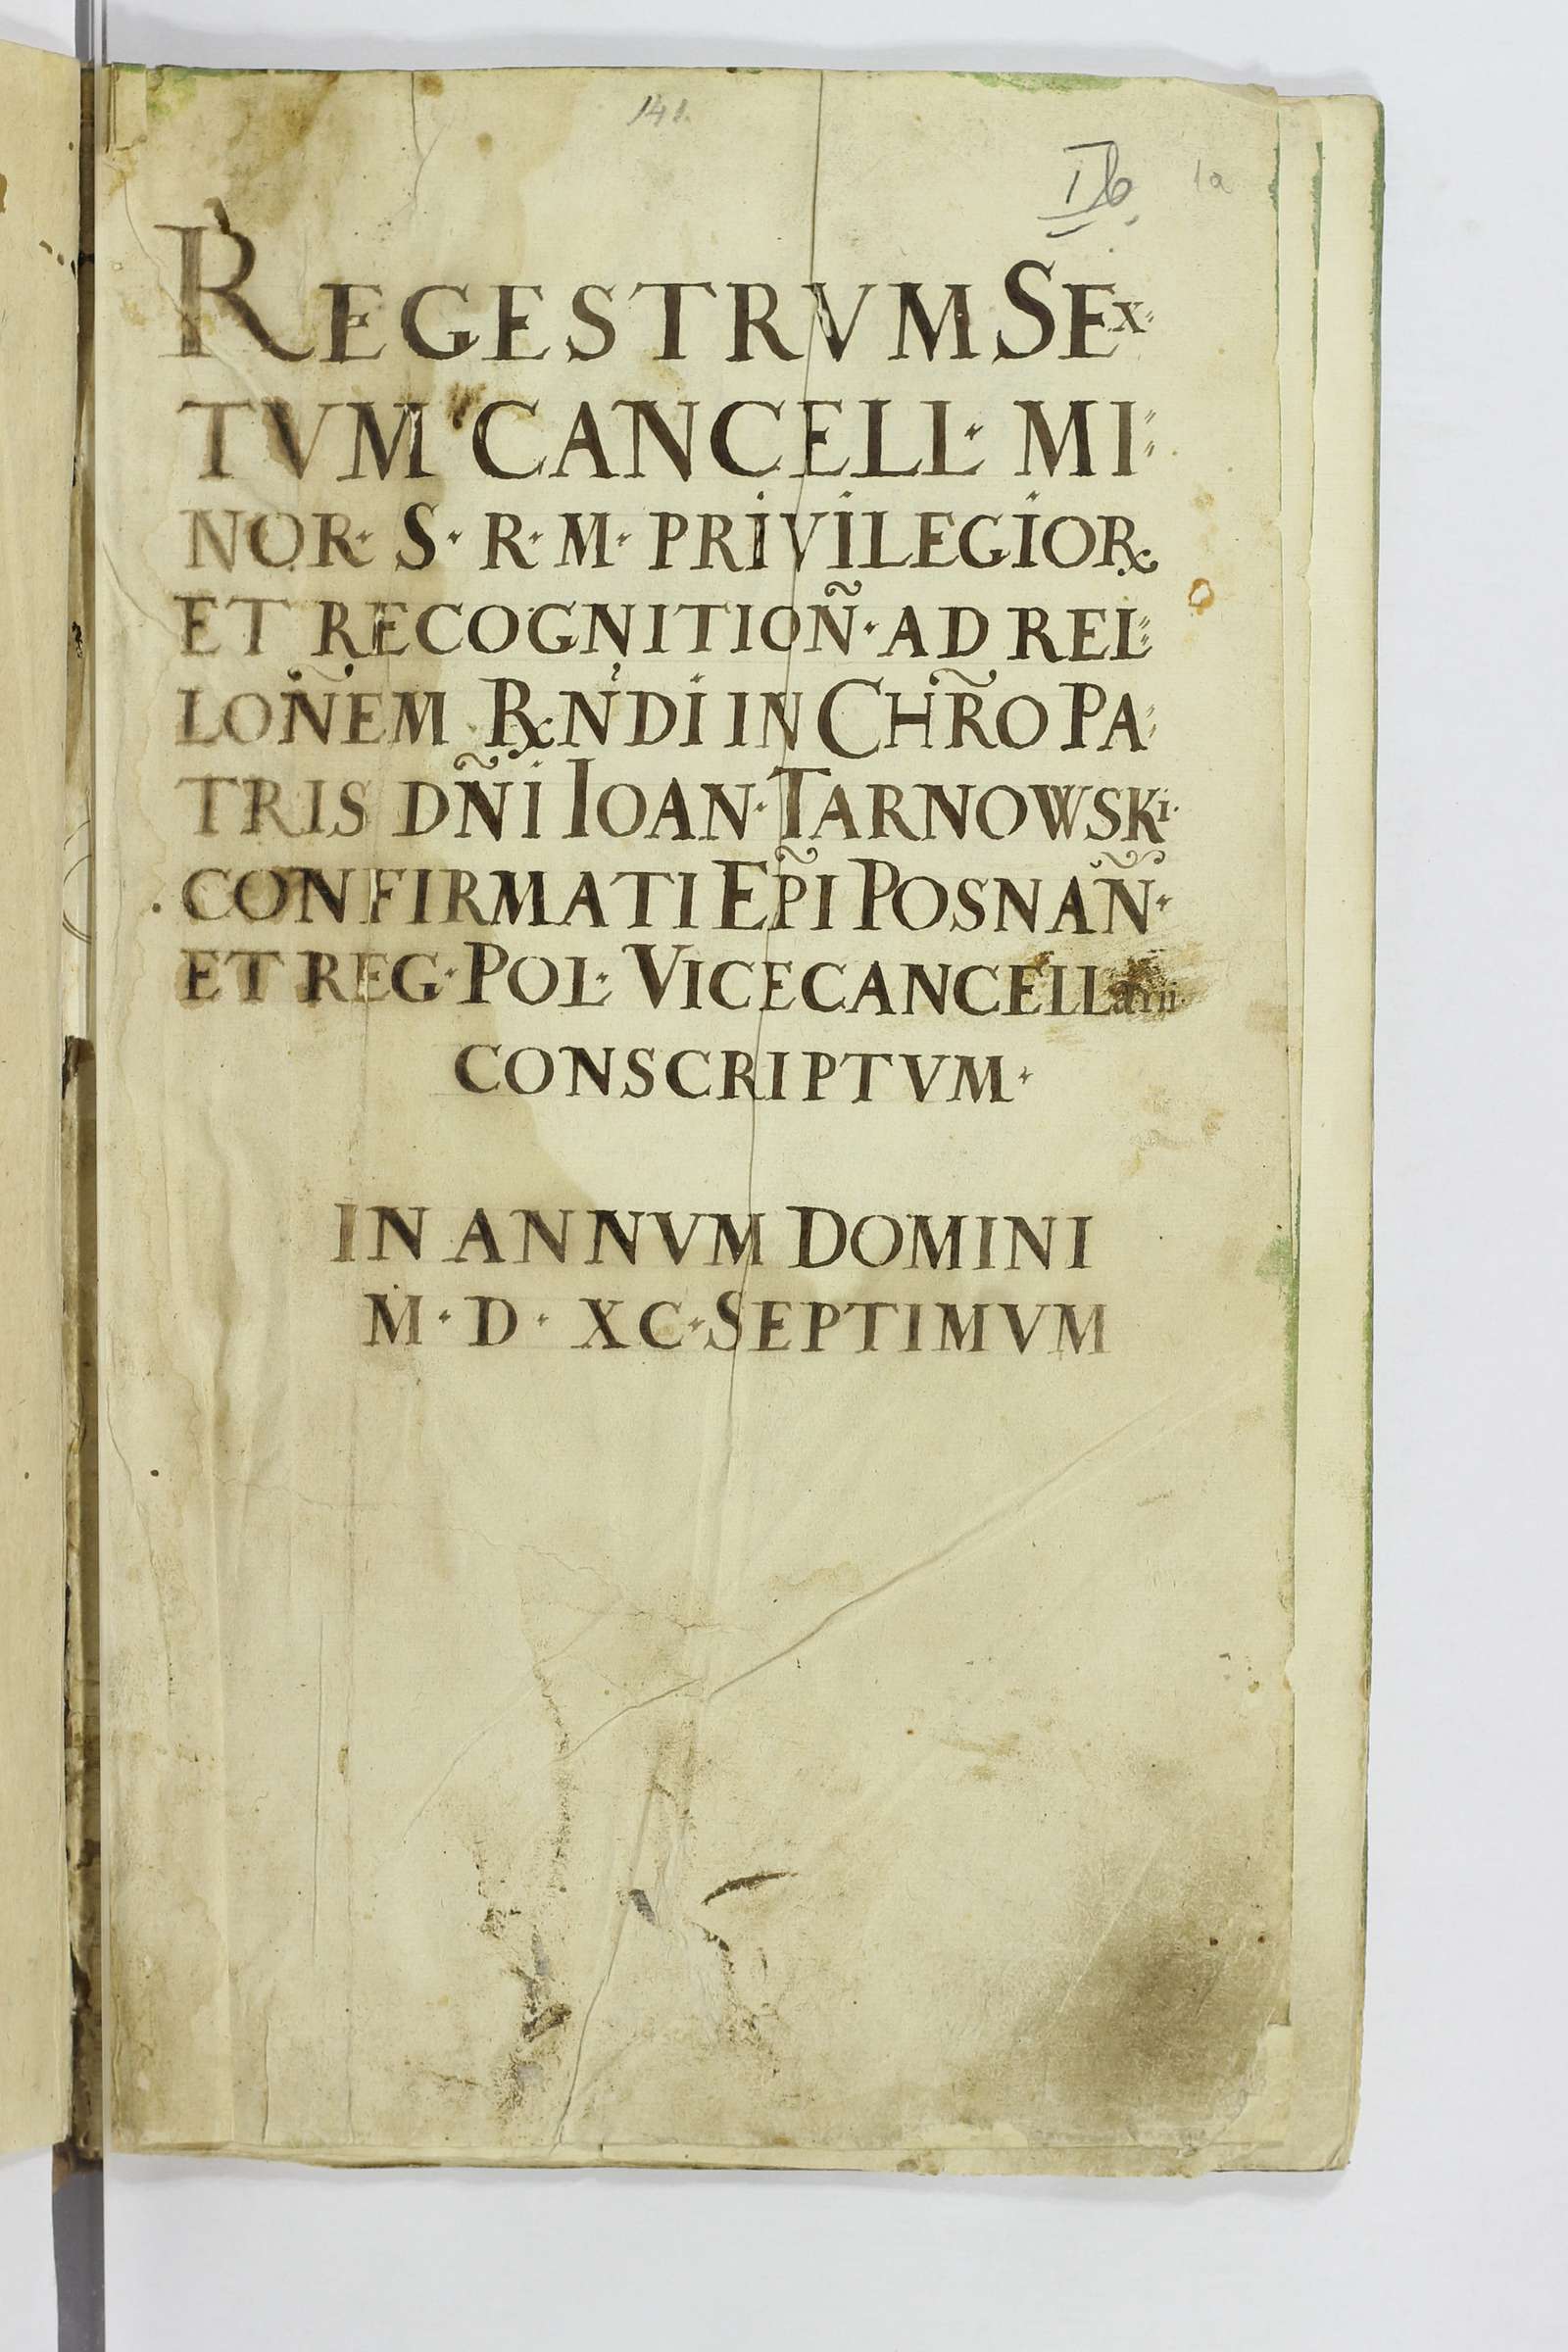 141.
1a
REGESTRVM SEX=
TVM CANCELL· MI=
NOR· S· R· M· PRIVILEGIORꝝ
ET RECOGNITIOÑ· AD REL=
LOÑEM RꝝNDI IN CHR̃O PA=
TRIS DÑI IOAN· TARNOWSKI·
CONFIRMATI EP̃I POSNAÑ·
ET REG· POL· VICECANCELLarij·
CONSCRIPTVM·
IN ANNVM DOMINI
M· D· XC· SEPTIMVM